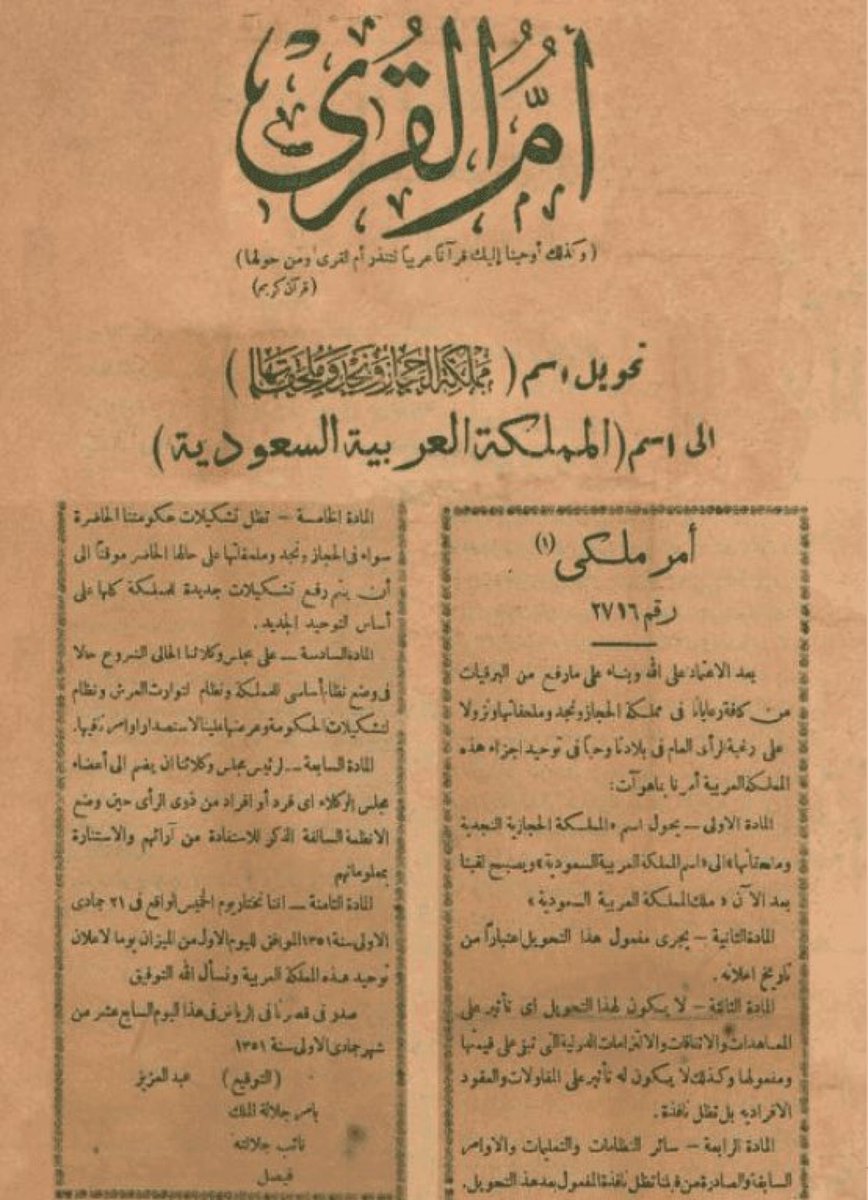 أم القرى
(وكذلك أوحينا إليك قرآنا عربيا لتنذر أم القرى ومن حولها)
(قرآن كريم)
تحويل اسم (مملكة الحجاز ونجد وملحقاتها)
الى اسم (المملكة العربية السعودية)
أمر ملكى (١)
رقم ٢٧١٦
بعد الاعتماد على الله وبناء على مارفع من البرقيات
من كافة رعايانا فى مملكة الحجاز ونجد وملحقاتها ونزولا
على رغبة الرأى العام فى بلادنا وحبا فى توحيد اجزاء هذه
المملكة العربية أمرنا بماهو آت:
المادة الاولى – يحول اسم «المملكة الحجازية النجدية
وملحقاتها» الى «اسم المملكة العربية السعودية» ويصبح لقبنا
بعد الآن «ملك المملكة العربية السعودية»
المادة الثانية – يجرى مفعول هذا التحويل اعتبارًا من
تاريخ اعلانه.
المادة الثالثة – لا يكون لهذا التحويل اى تأثير على
المعاهدات والاتفاقات والالتزامات الدولية التى تبقى على قيمتها
ومفعولها وكذلك لا يكون له تأثير على المقاولات والعقود
الافرادية بل تظل نافذة.
المادة الرابعة – سائر النظامات والتعليمات والاوامر
السابقة والصادرة من قبلنا تظل نافذة المفعول بعد هذا التحويل.
المادة الخامسة – تظل تشكيلات حكومتنا الحاضرة
سواء فى الحجاز ونجد وملحقاتها على حالها الحاضر موقتًا الى
أن يتم رفع تشكيلات جديدة للمملكة كلها على
أساس التوحيد الجديد.
المادة السادسة – على مجلس وكلائنا الحالى الشروع حالا
فى وضع نظام أساسى للمملكة ونظام لتوارث العرش ونظام
لتشكيلات الحكومة وعرضها علينا لاستصدار اوامرنا فيها.
المادة السابعة – لرئيس مجلس وكلائنا ان يضم الى أعضاء
مجلس الوكلاء اى فرد أو افراد من ذوى الرأى حين وضع
الانظمة السالفة الذكر للاستفادة من آرائهم والاستنارة
بمعلوماتهم
المادة الثامنة – اننا نختار يوم الخميس الواقع فى ٢١ جمادى
الاولى سنة ١٣٥١ الموافق لليوم الاول من الميزان يوما لاعلان
توحيد هذه المملكة العربية ونسأل الله التوفيق
صدر فى قصرنا فى الرياض فى هذا اليوم السابع عشر من
شهر جمادى الاولى سنة ١٣٥١
(التوقيع) عبد العزيز
بامر جلالة الملك
نائب جلالته
فيصل